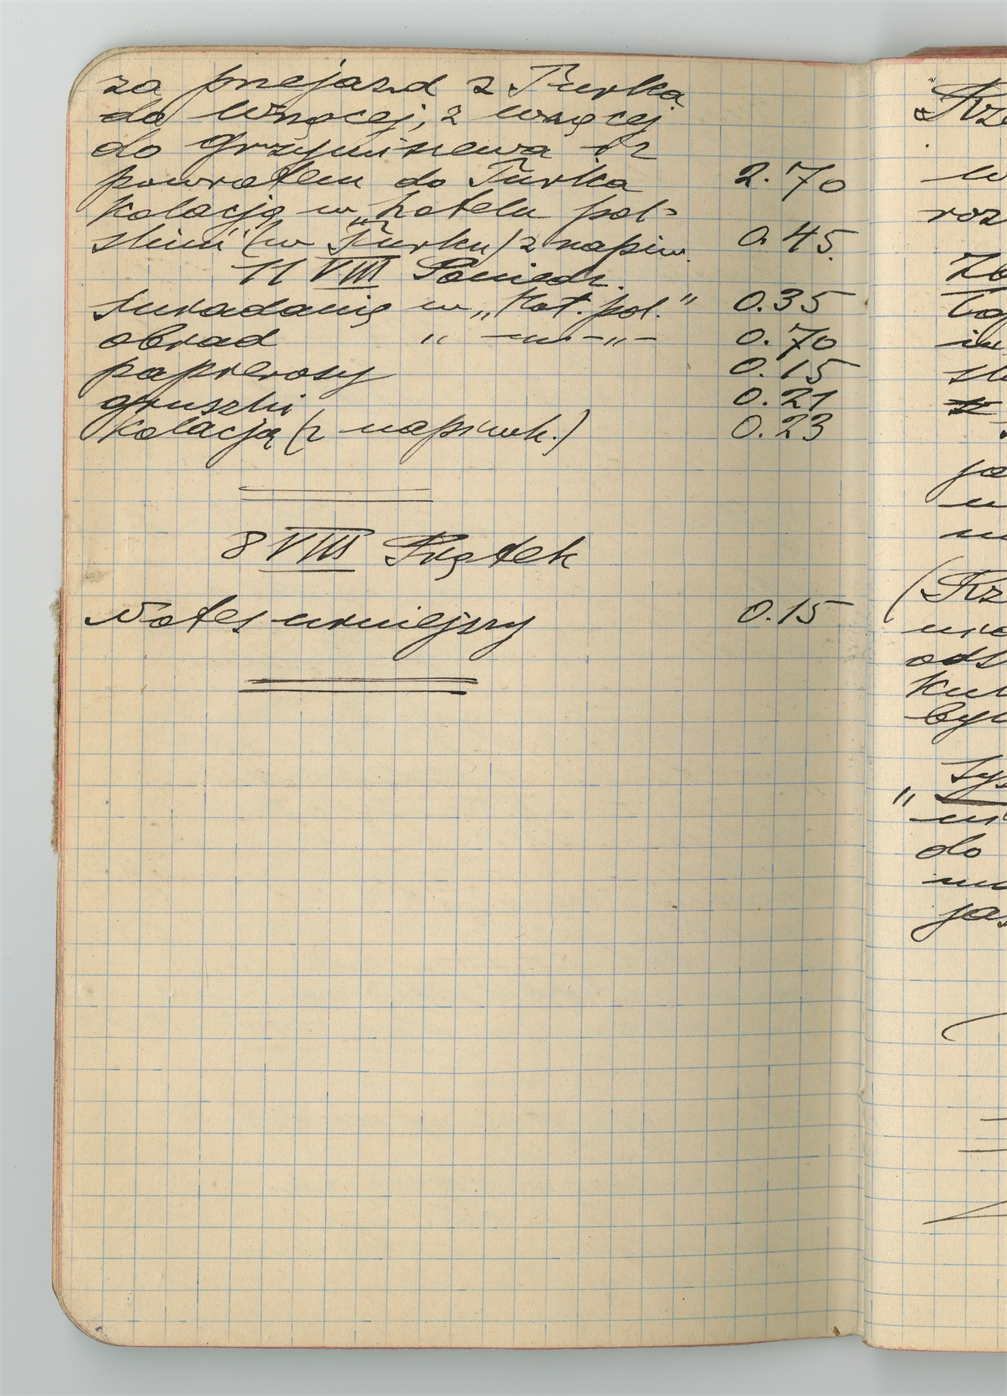 za przejazd z Turka
do Wrącej, z Wrącej
do Grzymiszewa i z
powrotem do Turka 2.70
kolację w „hotelu pol-
skim" (w Turku) z napiw. 0.45
11 VIII Poniedz.
śniadanie w „Hot. pol." 0.35
obiad „ — „ — 0.70
papierosy 0.15
gruszki 0.21
kolacja (z napiwk.) 0.23
8 VIII Piątek
Notes mniejszy 0.15
w
roz
ją
(Krz
ods
był
do